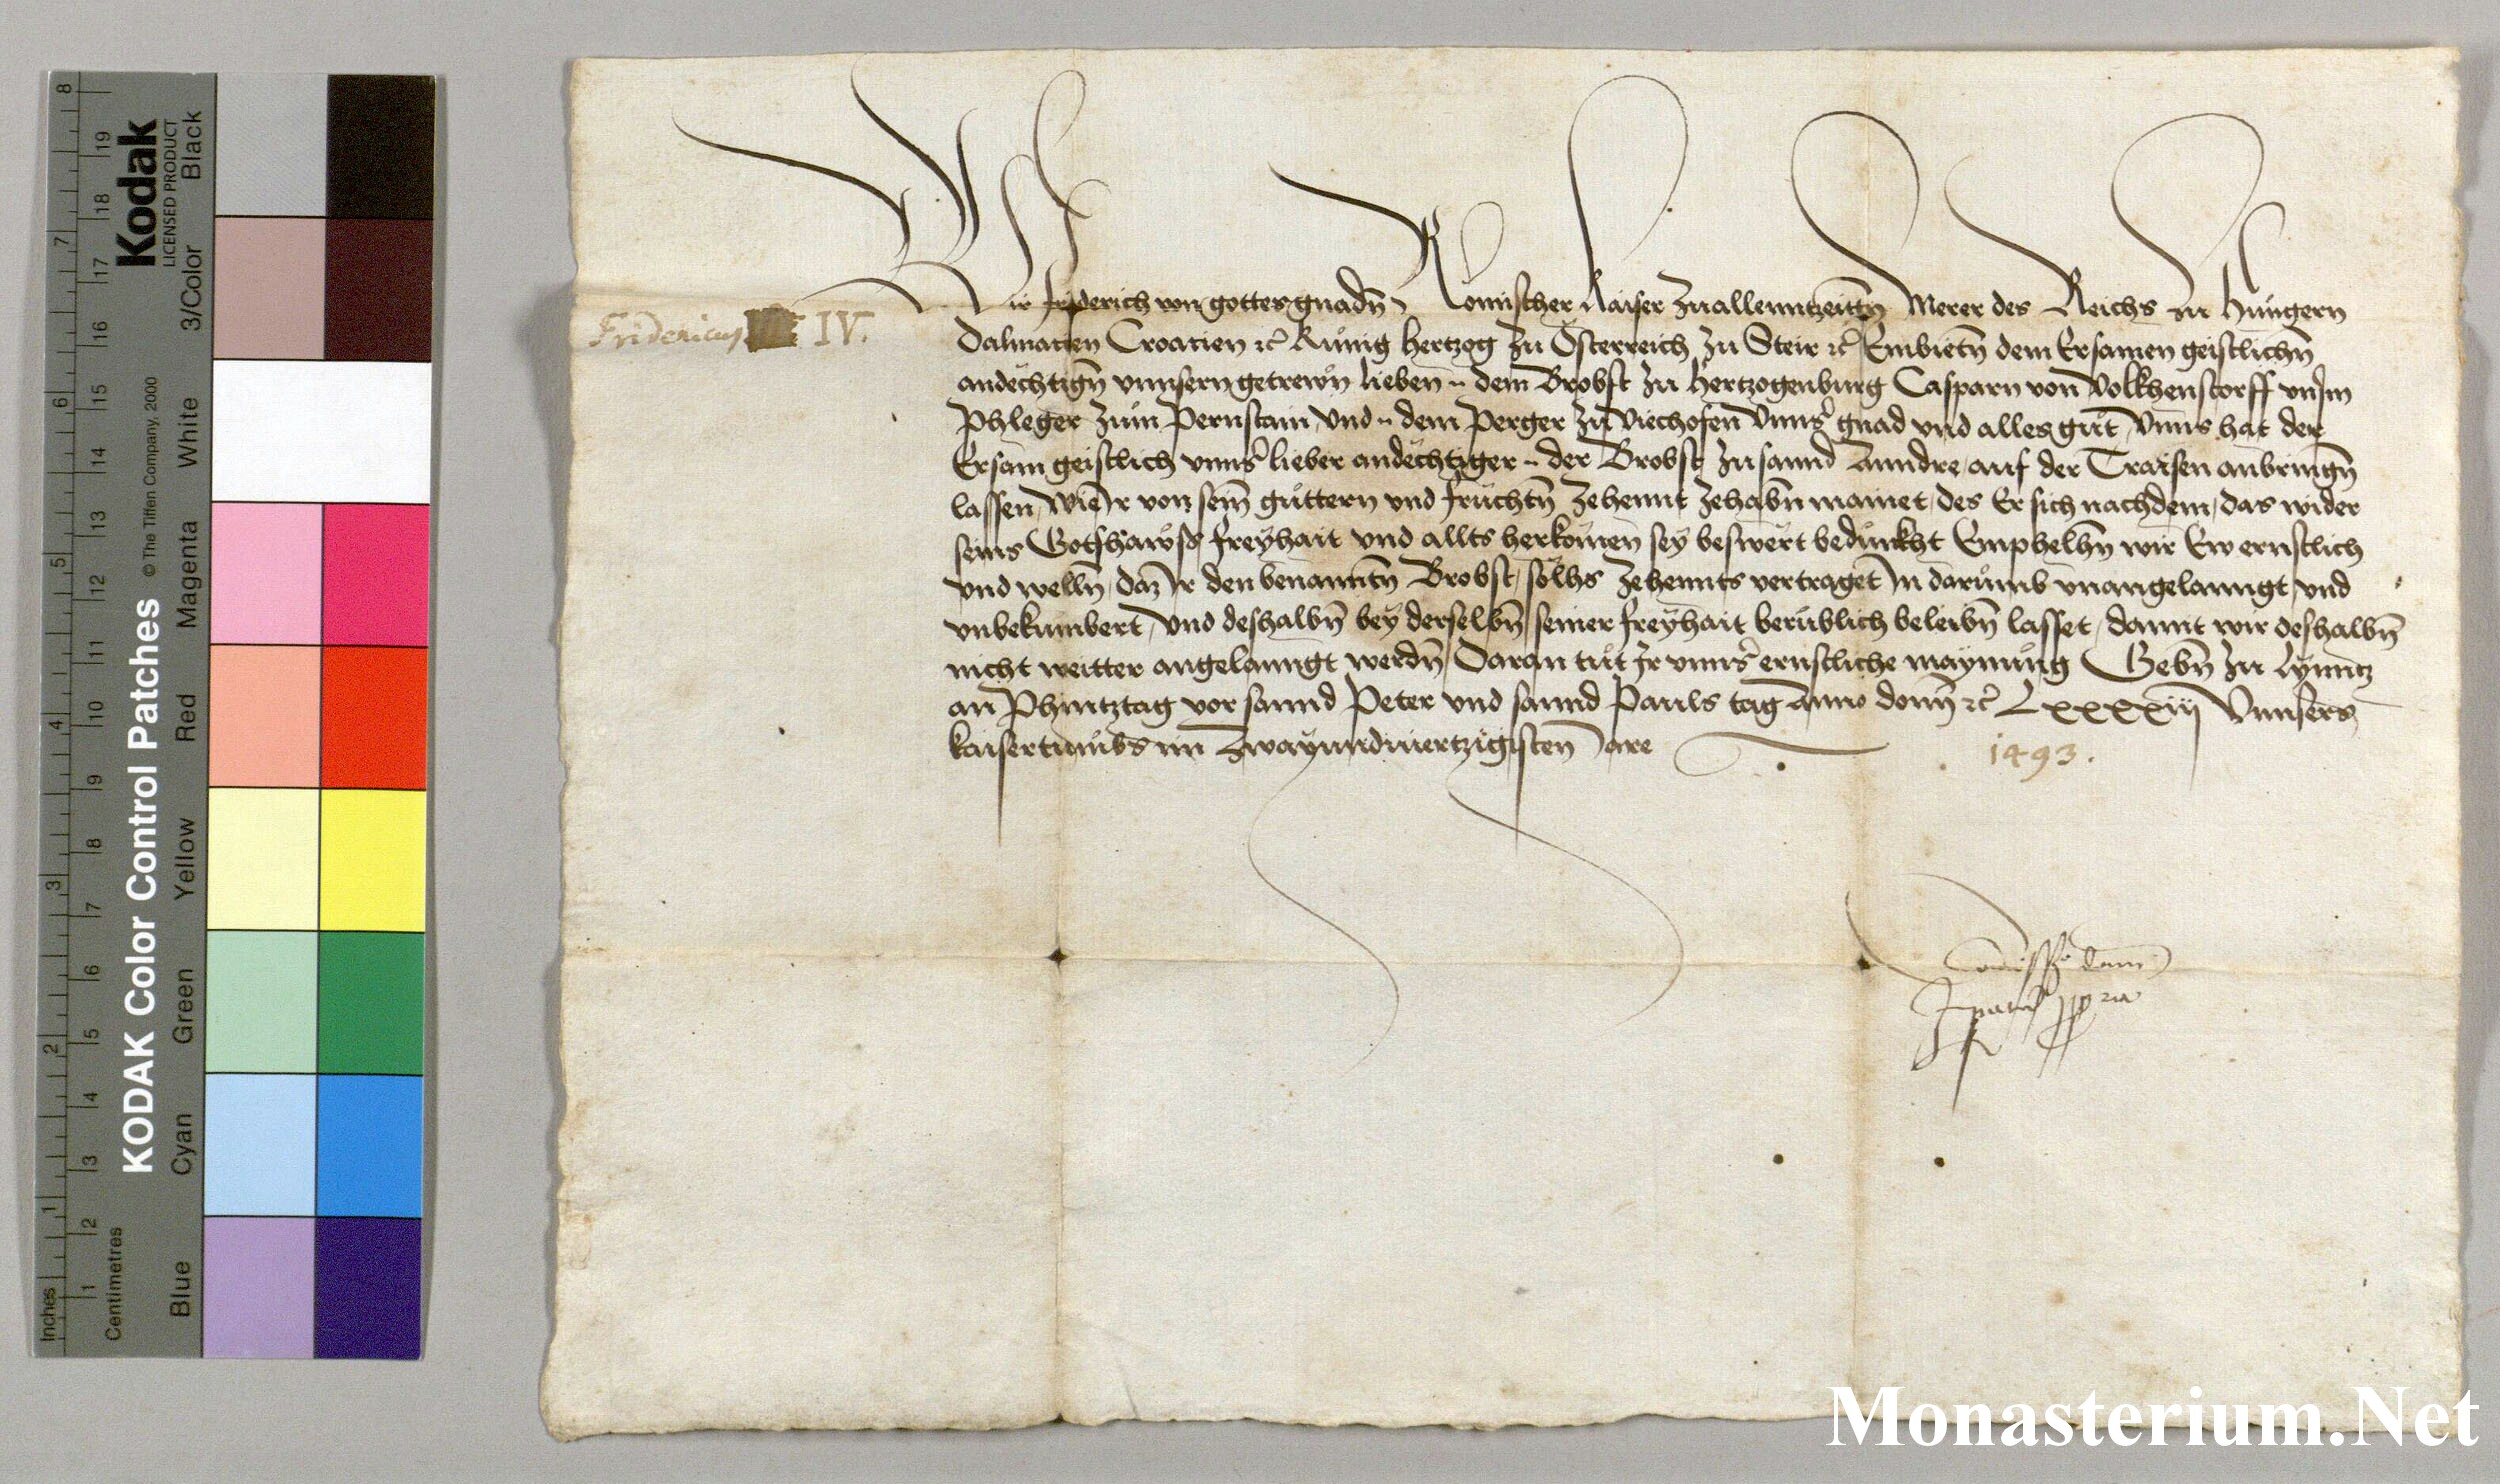 Wir Friderich von gottes gnadn̄ Römischer Kaiser zuallenntzeittn̄ Merer des Reichs zu Hungern
Fridericus IV.
Dalmatien Croatien ꝛc̄ Kunig Hertzog zu Österreich zu Steir ꝛc̄ Embietn̄ dem Ersamen geistlichn̄
andechtign̄ vnnsern getrewn̄ lieben .. dem Brobst zu Hertzogenburg Casparn von Volkhenstorff vnsm̄
Phleger zum Pernstain, Vnd .. dem Perger zu Viechofen Vnnsͬ gnad vnd alles gůt, Vnns hat der
Ersam geistlich vnnsͬ lieber andechtiger .. der Brobst zu sannd Anndre auf der Traisen anbringn̄
lassen, wie Ir von sein̄ guttern vnd fruchtn̄ zehennt zehabn̄ mainet, des Er sich nachdem, das wider
seins Gotshawss freyhait vnd allts herkomen̄ sey beswert bedunkht Emphelhn̄ wir Ew ernstlich
vnd welln̄, daz Ir den benanntn̄ Brobst, solhs zehennts vertraget In darumb vnangelanngt, vnd
vnbekumbert, Vnd deshalbn̄ bey derselbn̄ seiner freyhait berublich beleibn̄ lasset, damit wir deshalbn̄
nicht weitter angelanngt werdn̄ Daran tůt Ir vnnsͬ ernstliche maynung Gebn̄ zu Lynntz
an Phintztag vor sannd Peter vnd sannd Pauls tag Anno domī ꝛc̄ Lxxxxiij Vnnsers
kaisertumbs im Zwayundviertzigisten Iare
1493.
Com̄issio dom̄
Impatorꝭ ppͥa
KODAK Color Control Patches © The Tiffen Company, 2000
Kodak
LICENSED PRODUCT
Inches 1 2 3 4 5 6 7 8
Centimetres 1 2 3 4 5 6 7 8 9 10 11 12 13 14 15 16 17 18 19
Blue Cyan Green Yellow Red Magenta White 3/Color Black
Monasterium.Net